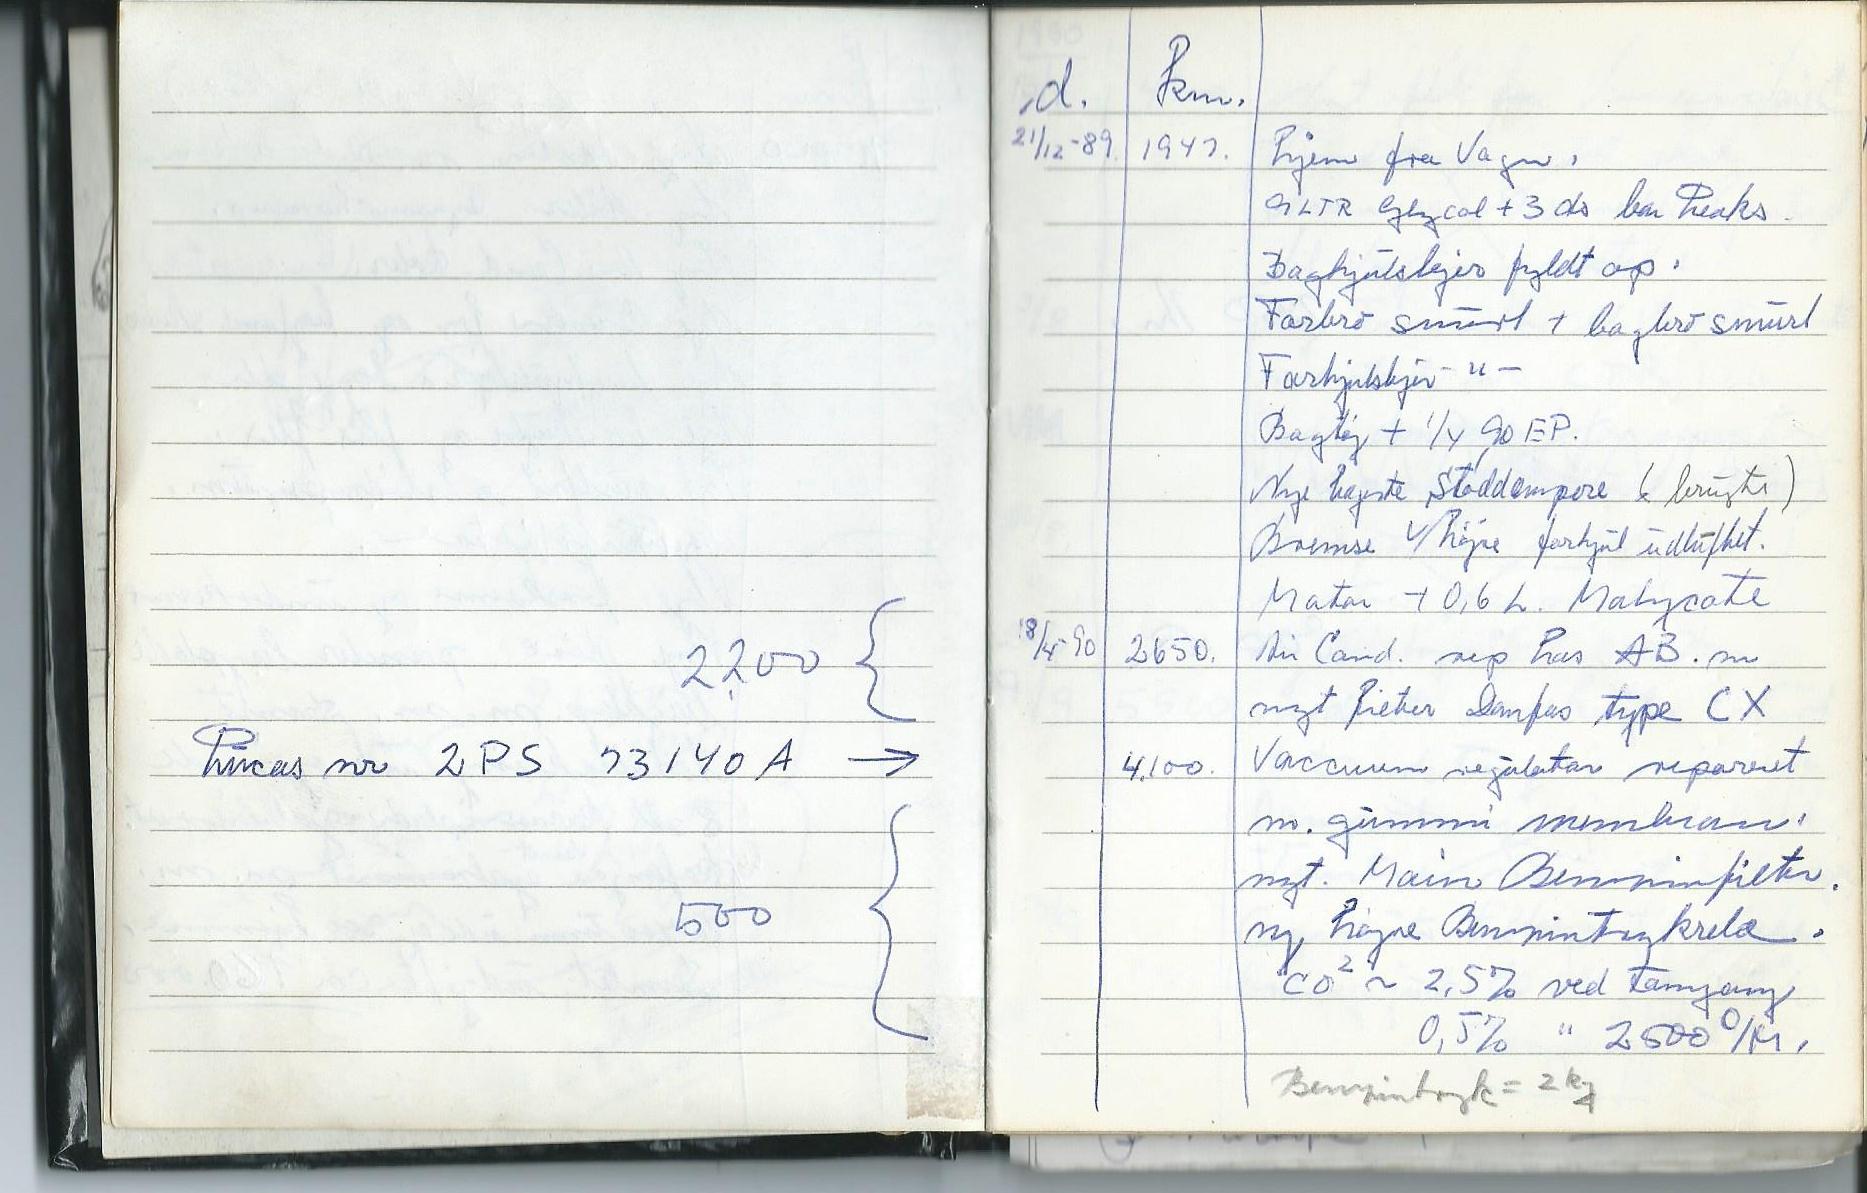 2200
Lucas nr 2PS 73140A →
500
d. km.
21/12-89. 1947. Hjem fra Vagn.
9 LTR Glycol + 3 ds bar leaks.
Baghjulslejer fyldt op.
Forbro smurt + bagbro smurt
Forhjulslejer - " -
Bagtøj + 1/4 90 EP.
Nye bageste Støddempere (brugte)
Bremse v/højre forhjul udluftet.
Motor + 0,6 L. Molycote
18/4-90 2650. Air Cond. rep hos AB. m
nyt filter Danfos type CX
4.100. Vaccuum regulator repareret
m. gummi membran.
nyt. Main Benzinfilter.
ny højre Benzintrykrelæ.
CO² ~ 2,5% ved Tomgang
0,5% " 2500 O/M.
Benzintryk = 2 kg